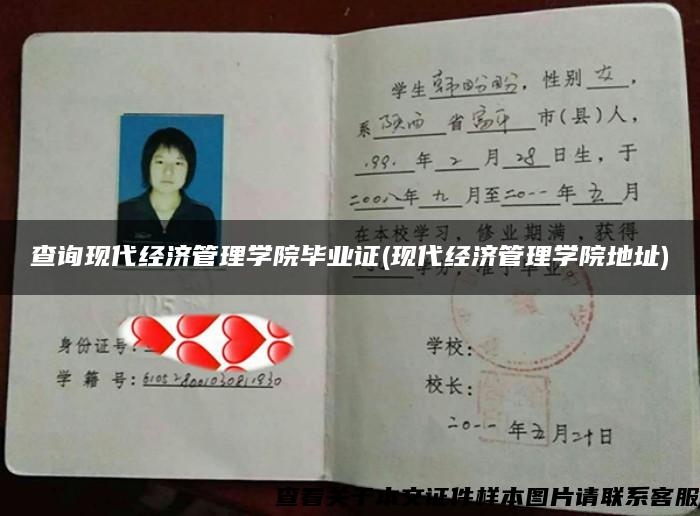 学生韩盼盼，性别女，
系陕西省富平市(县)人，
1991年2月28日生，于
二00八年九月至二0一一年五月
在本校学习，修业期满，获得
学分，准予毕业。
查询现代经济管理学院毕业证(现代经济管理学院地址)
身份证号：
学籍号：610528001030811930
学校：
校长：
二0一一年五月二十日
查看关于本文证件样本图片请联系客服